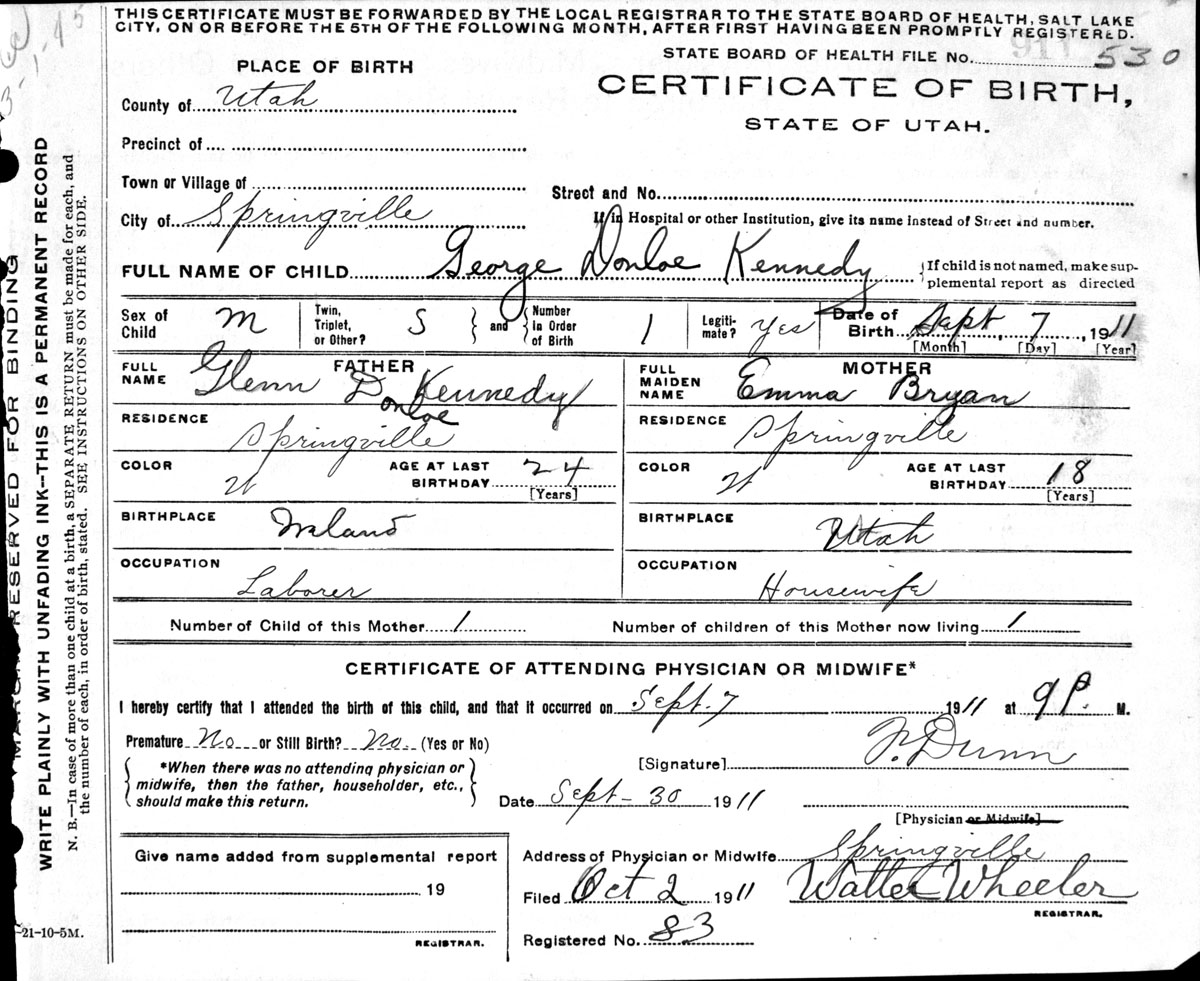 THIS CERTIFICATE MUST BE FORWARDED BY THE LOCAL REGISTRAR TO THE STATE BOARD OF HEALTH, SALT LAKE
CITY, ON OR BEFORE THE 5TH OF THE FOLLOWING MONTH, AFTER FIRST HAVING BEEN PROMPTLY REGISTERED.
STATE BOARD OF HEALTH FILE No. 530
PLACE OF BIRTH
CERTIFICATE OF BIRTH,
STATE OF UTAH.
County of Utah
Precinct of
Town or Village of
Street and No.
City of Springville
If in Hospital or other Institution, give its name instead of Street and number.
FULL NAME OF CHILD George Donloe Kennedy
If child is not named, make sup-
plemental report as directed
Sex of Child M
Twin, Triplet, or Other? S
and Number in Order of Birth 1
Legiti-mate? Yes
Date of Birth Sept 7, 1911
[Month] [Day] [Year]
FATHER
FULL NAME Glenn Donloe Kennedy
RESIDENCE Springville
COLOR W AGE AT LAST BIRTHDAY 24
[Years]
BIRTHPLACE Ireland
OCCUPATION Laborer
MOTHER
FULL MAIDEN NAME Emma Bryan
RESIDENCE Springville
COLOR W AGE AT LAST BIRTHDAY 18
[Years]
BIRTHPLACE Utah
OCCUPATION Housewife
Number of Child of this Mother 1 Number of children of this Mother now living 1
CERTIFICATE OF ATTENDING PHYSICIAN OR MIDWIFE*
I hereby certify that I attended the birth of this child, and that it occurred on Sept. 7 1911 at 9 P. M.
Premature No or Still Birth? No. (Yes or No)
*When there was no attending physician or
midwife, then the father, householder, etc.,
should make this return.
[Signature] F. Dunn
Date Sept-30 1911
[Physician or Midwife]
Give name added from supplemental report
19
REGISTRAR.
Address of Physician or Midwife Springville
Filed Oct 2 1911 Walter Wheeler
REGISTRAR.
Registered No. 83
-21-10-5M.
MARGIN RESERVED FOR BINDING
WRITE PLAINLY WITH UNFADING INK--THIS IS A PERMANENT RECORD
N. B.—In case of more than one child at a birth, a SEPARATE RETURN must be made for each, and
the number of each, in order of birth, stated. SEE INSTRUCTIONS ON OTHER SIDE.